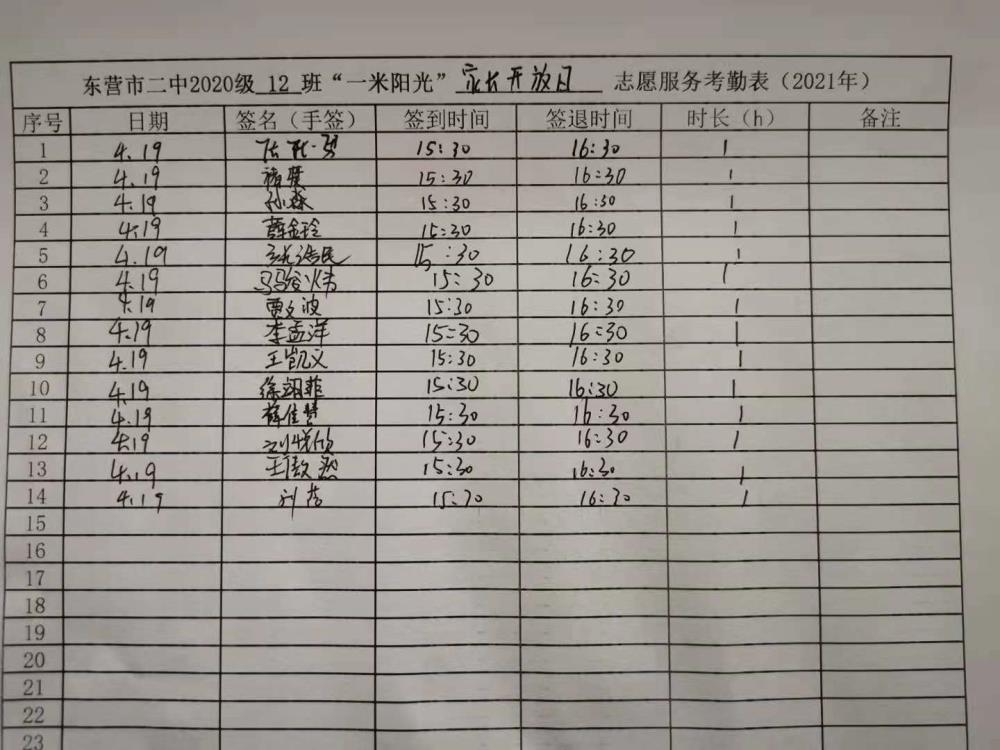 东营市二中2020级 12 班“一米阳光”家长开放日 志愿服务考勤表（2021年）
序号 日期 签名（手签） 签到时间 签退时间 时长（h） 备注
1 4.19 15:30 16:30 1
2 4.19 褚贤 15:30 16:30 1
3 4.19 孙淼 15:30 16:30 1
4 4.19 薛金玲 15:30 16:30 1
5 4.19 15:30 16:30 1
6 4.19 15:30 16:30 1
7 4.19 贾文波 15:30 16:30 1
8 4.19 李孟洋 15:30 16:30 1
9 4.19 王凯义 15:30 16:30 1
10 4.19 徐翊菲 15:30 16:30 1
11 4.19 薛佳慧 15:30 16:30 1
12 4.19 15:30 16:30 1
13 4.19 王傲然 15:30 16:30 1
14 4.19 15:30 16:30 1
15
16
17
18
19
20
21
22
23